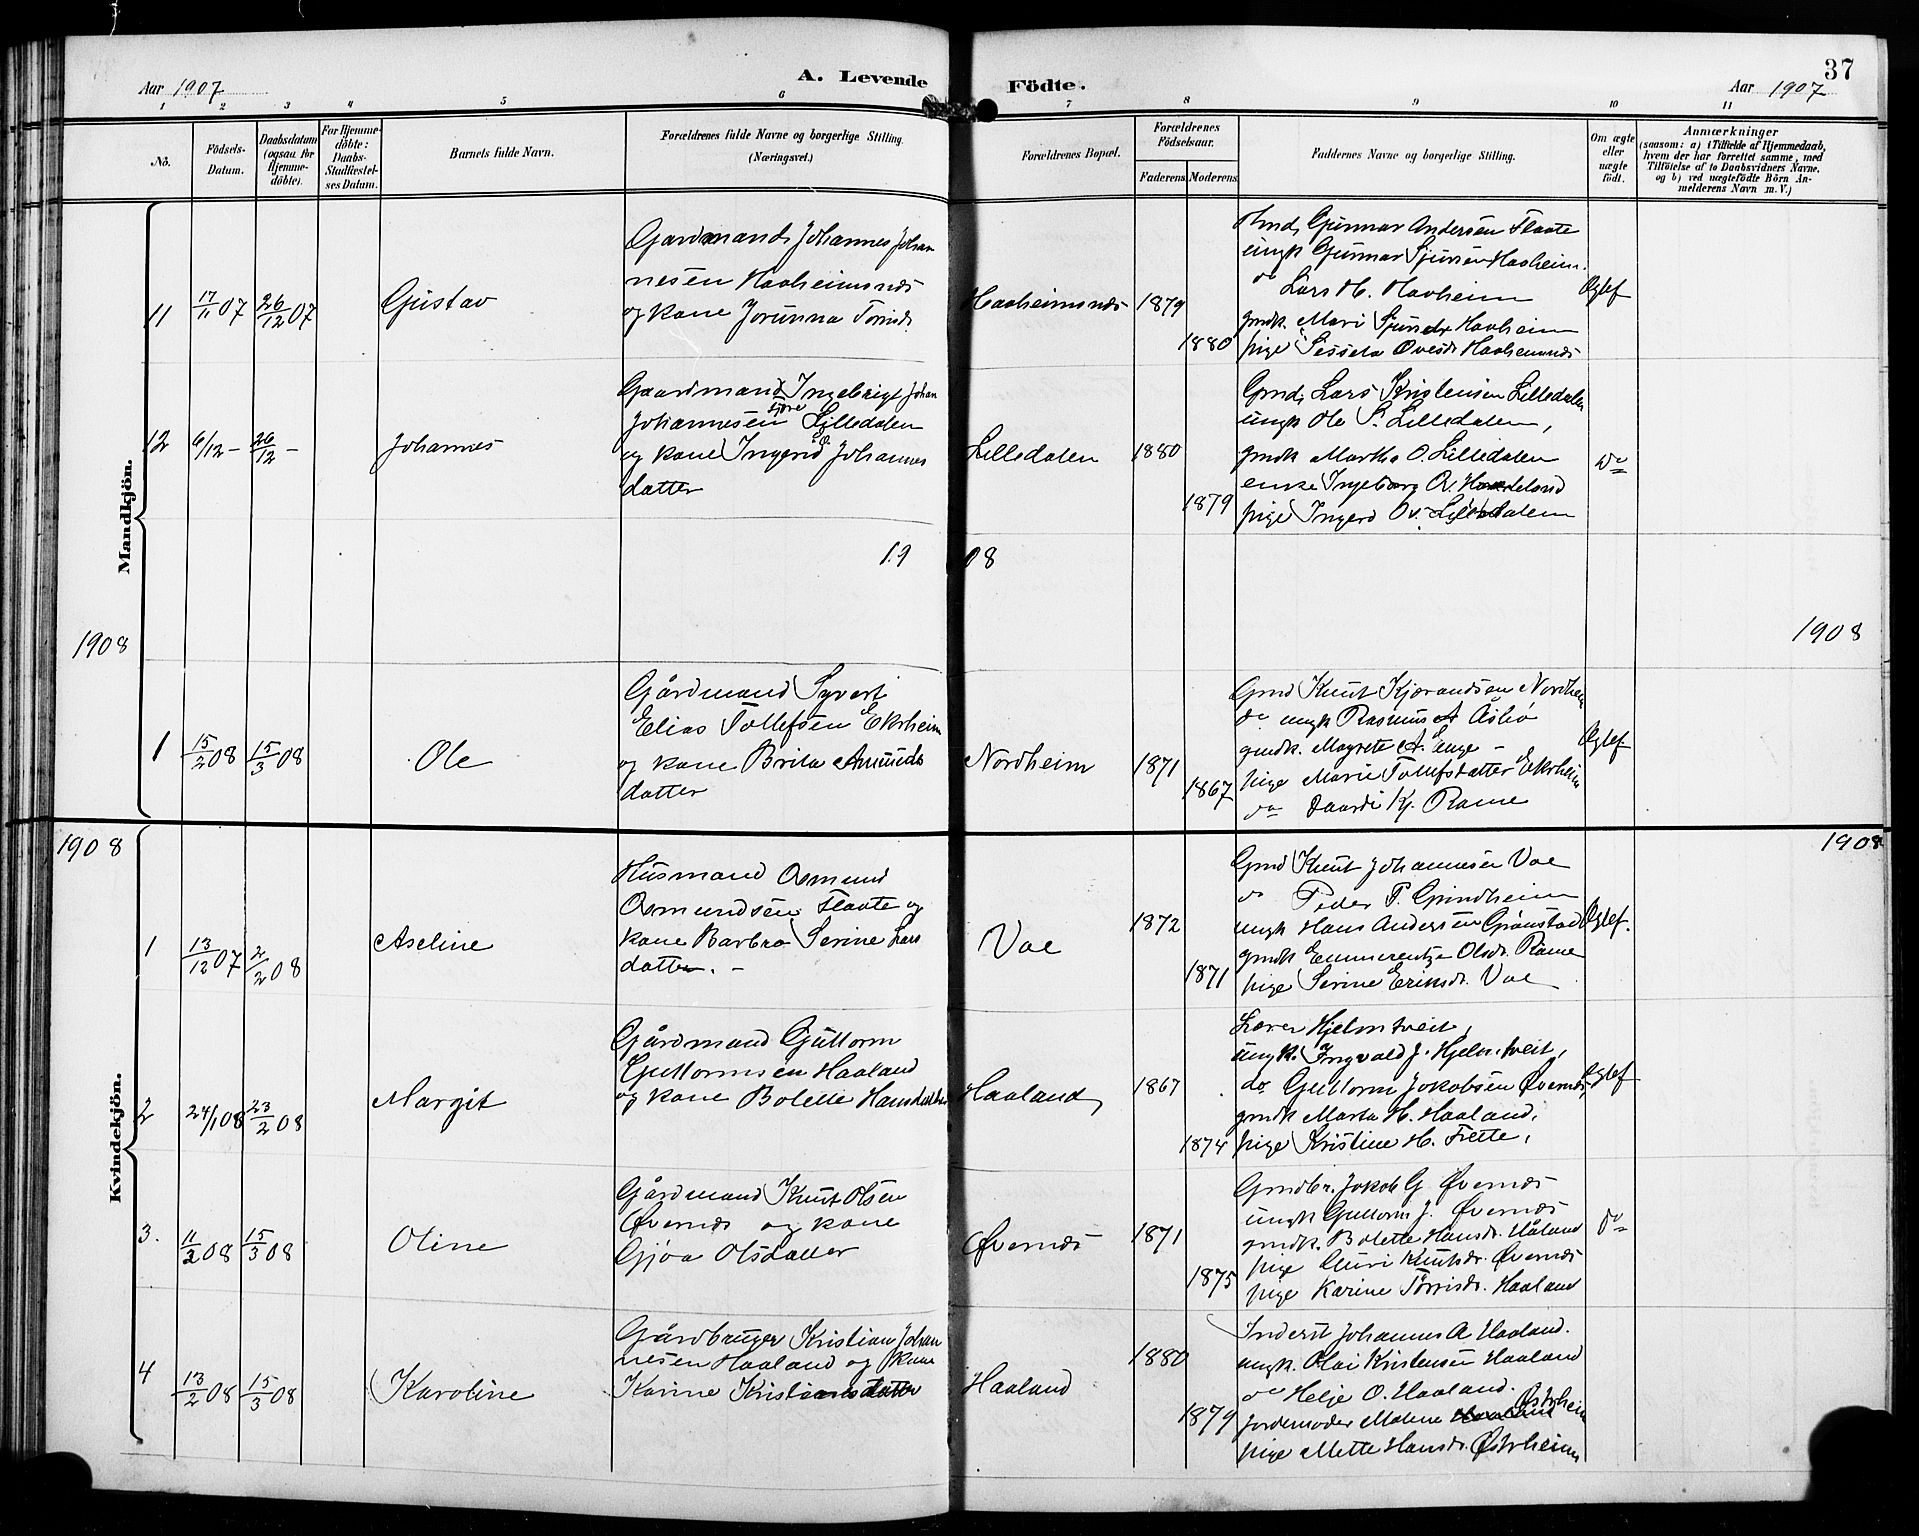 37
Aar 1907
A. Levende
Födte.
Aar 1907
1 2 3 4 5 6 7 8 9 10 11
No.
Födsels-
Datum.
Daabsdatum
(ogsaa for
Hjemme-
döbte).
For Hjemme-
döbte:
Daabs-
Stadfæstel-
ses Datum.
Barnets fulde Navn.
Forældrenes fulde Navne og borgerlige Stilling.
(Næringsvei.)
Forældrenes Bopæl.
Forældrenes
Födselsaar.
Faderens.
Moderens.
Faddernes Navne og borgerlige Stilling.
Om ægte
eller
uægte
födt.
Anmærkninger
(saasom: a) i Tilfælde af Hjemmedaab,
hvem der har forrettet samme, med
Tilföielse af to Daabsvidners Navne,
og b) ved uægtefödte Börn An-
melderens Navn m. V.)
Mandkjön.
11
17/11 07
26/12 07
Gustav
Gardmand Johannes Johan
nesen Haaheimsnes
og kone Jorunna Torrisdr
Haaheimsnes
1879
1880
Gmd, Gunnar Andersen Flaate
ungk Gunnar Sjursen Haaheim.
do Lars H. Haaheim
gmdk. Mari Sjursdr Haaheim
pige Sessela Ovesdr Haaheimsnes
Ægtef
12
6/12 -
26/12 -
Johannes
Gaardmand Ingebrigt Johan
Johannesen Lilledalen
og kone Ingerid Johannes
datter
Lilledalen
1880
1879
Gmd, Lars Kristensen Lilledalen
ungk Ole S. Lilledalen,
gmdk Martha O. Lilledalen
enke Ingeborg O. Handeland
pige Ingerd Ov. Lilledalen
do
19 08
1908
1908
1
15/2 08
15/3 08
Ole
Gårdmand Syvert
Elias Tollefsen Ekrheim
og kone Brita Amunds
datter
Nordheim
1871
1867
Gmd Knut Kjærandsen Nordheim
do ungk Rasmus A Asbø
gmdk. Magrete A. Enge -
pige Marie Tollefsdatter Ekrheim
do Daardi Kj. Rame
Ægtef
1908
1908
Kvindekjön.
1
13/12 07
2/2 08
Aseline
Husmand Osmund
Osmundsen Flaate og
kone Barbro Serine Lars
datter. -
Vae
1872
1871
Gmd Knut Johannesen Vae
do Peder P. Grindheim
ungk Hans Andersen Grønstad
gmdk Emmerentze Olsdr. Rame
pige Serine Eriksdr. Vae
Ægtef.
2
24/1 08
23/2 08
Margit
Gårdmand Guttorm
Guttormsen Haaland
og kone Bolette Hansdatter
Haaland
1867
1874
Lærer Hjelmtveit,
ungk. Ingvald J. Hjelmtveit,
do Guttorm Jokobsen Øvernes,
gmdk Marta H. Haaland,
pige Kristine H. Frette,
Ægtef
3.
11/2 08
15/3 08
Oline
Gårdmand Knut Olsen
Øvernes og kone
Gjøa Olsdatter
Øvernes
1871
1875
Gmdbr. Jokob G Øvernes
ungk Guttorm J. Øvernes
gmdk. Bolette Hansdr. Håland
pige Guri Knutsdr. Øvernes
pige Karine Törrisdr. Haaland
do
4
13/2 08
15/3 08
Karoline
Gårdbruger Kristian Johan
nesen Haaland og kone
Karine Kristiansdatter
Haaland
1880
1879
Inderst Johannes A Haaland.
ungk. Olai Kristensen Haaland
do Helje O. Haaland.
Jordemoder Malene Østrheim
pige Mette Hansdr. Østrheim